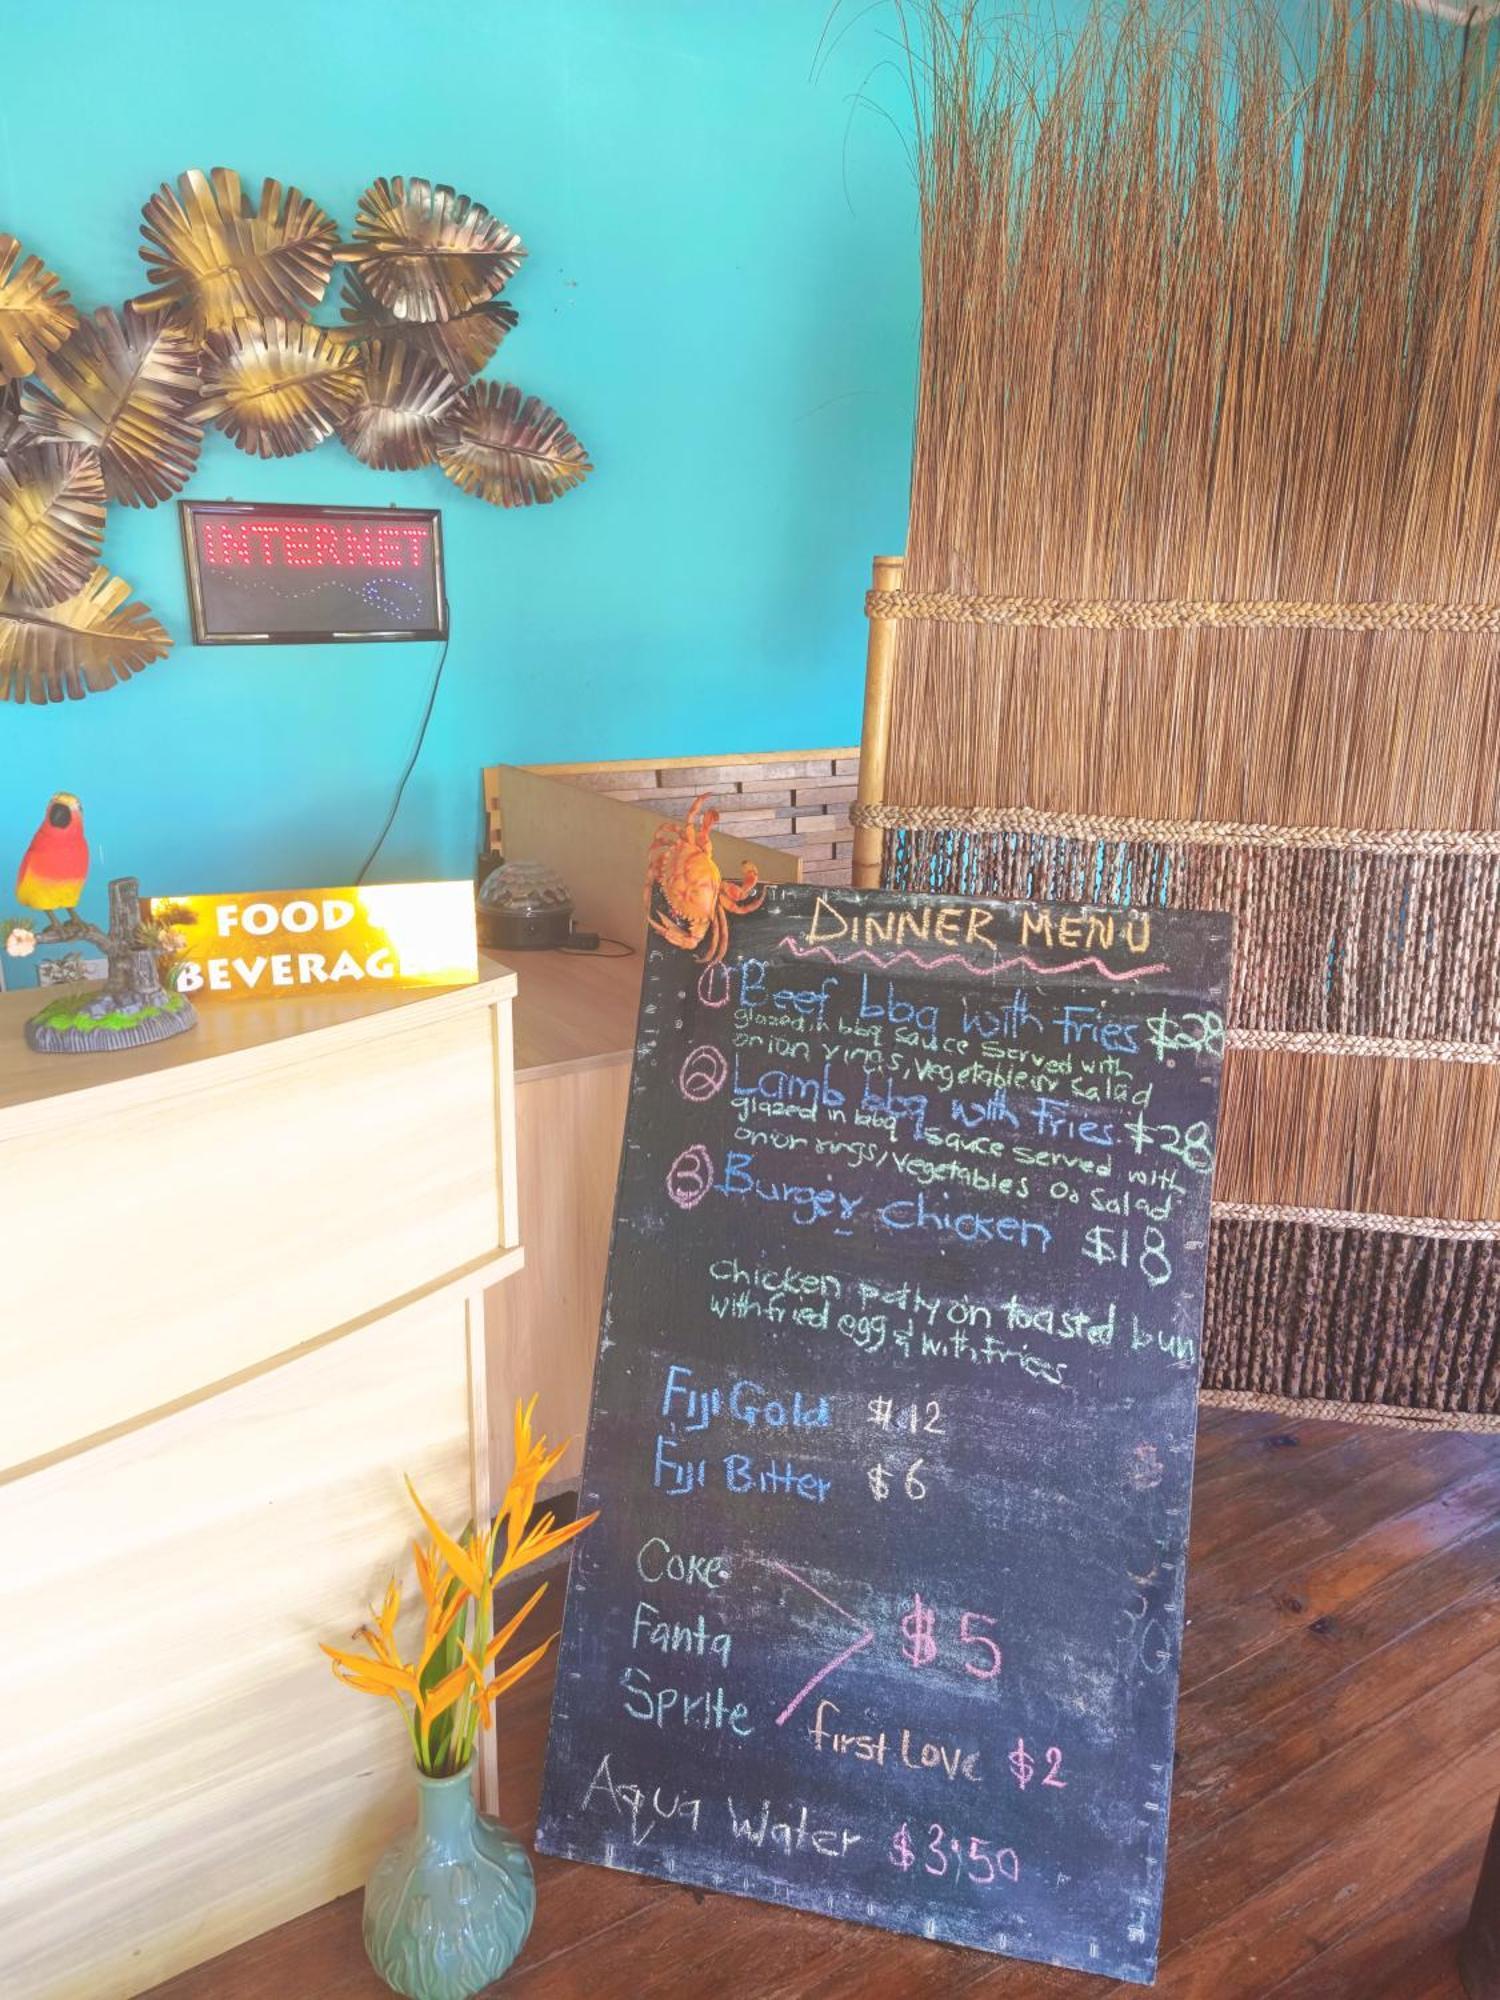 INTERNET
FOOD
BEVERAG
DINNER MENU
1 Beef bbq with Fries $28
glazed in bbq sauce served with
onion rings, Vegetables Or Salad
2 Lamb bbq with Fries $28
glazed in bbq sauce served with
onion rings, Vegetables Or Salad
3 Burger Chicken $18
Chicken patty on toasted bun
with fried egg & with fries
Fiji Gold $12
Fiji Bitter $6
Coke
Fanta $5
Sprite
first Love $2
Aqua Water $3.50